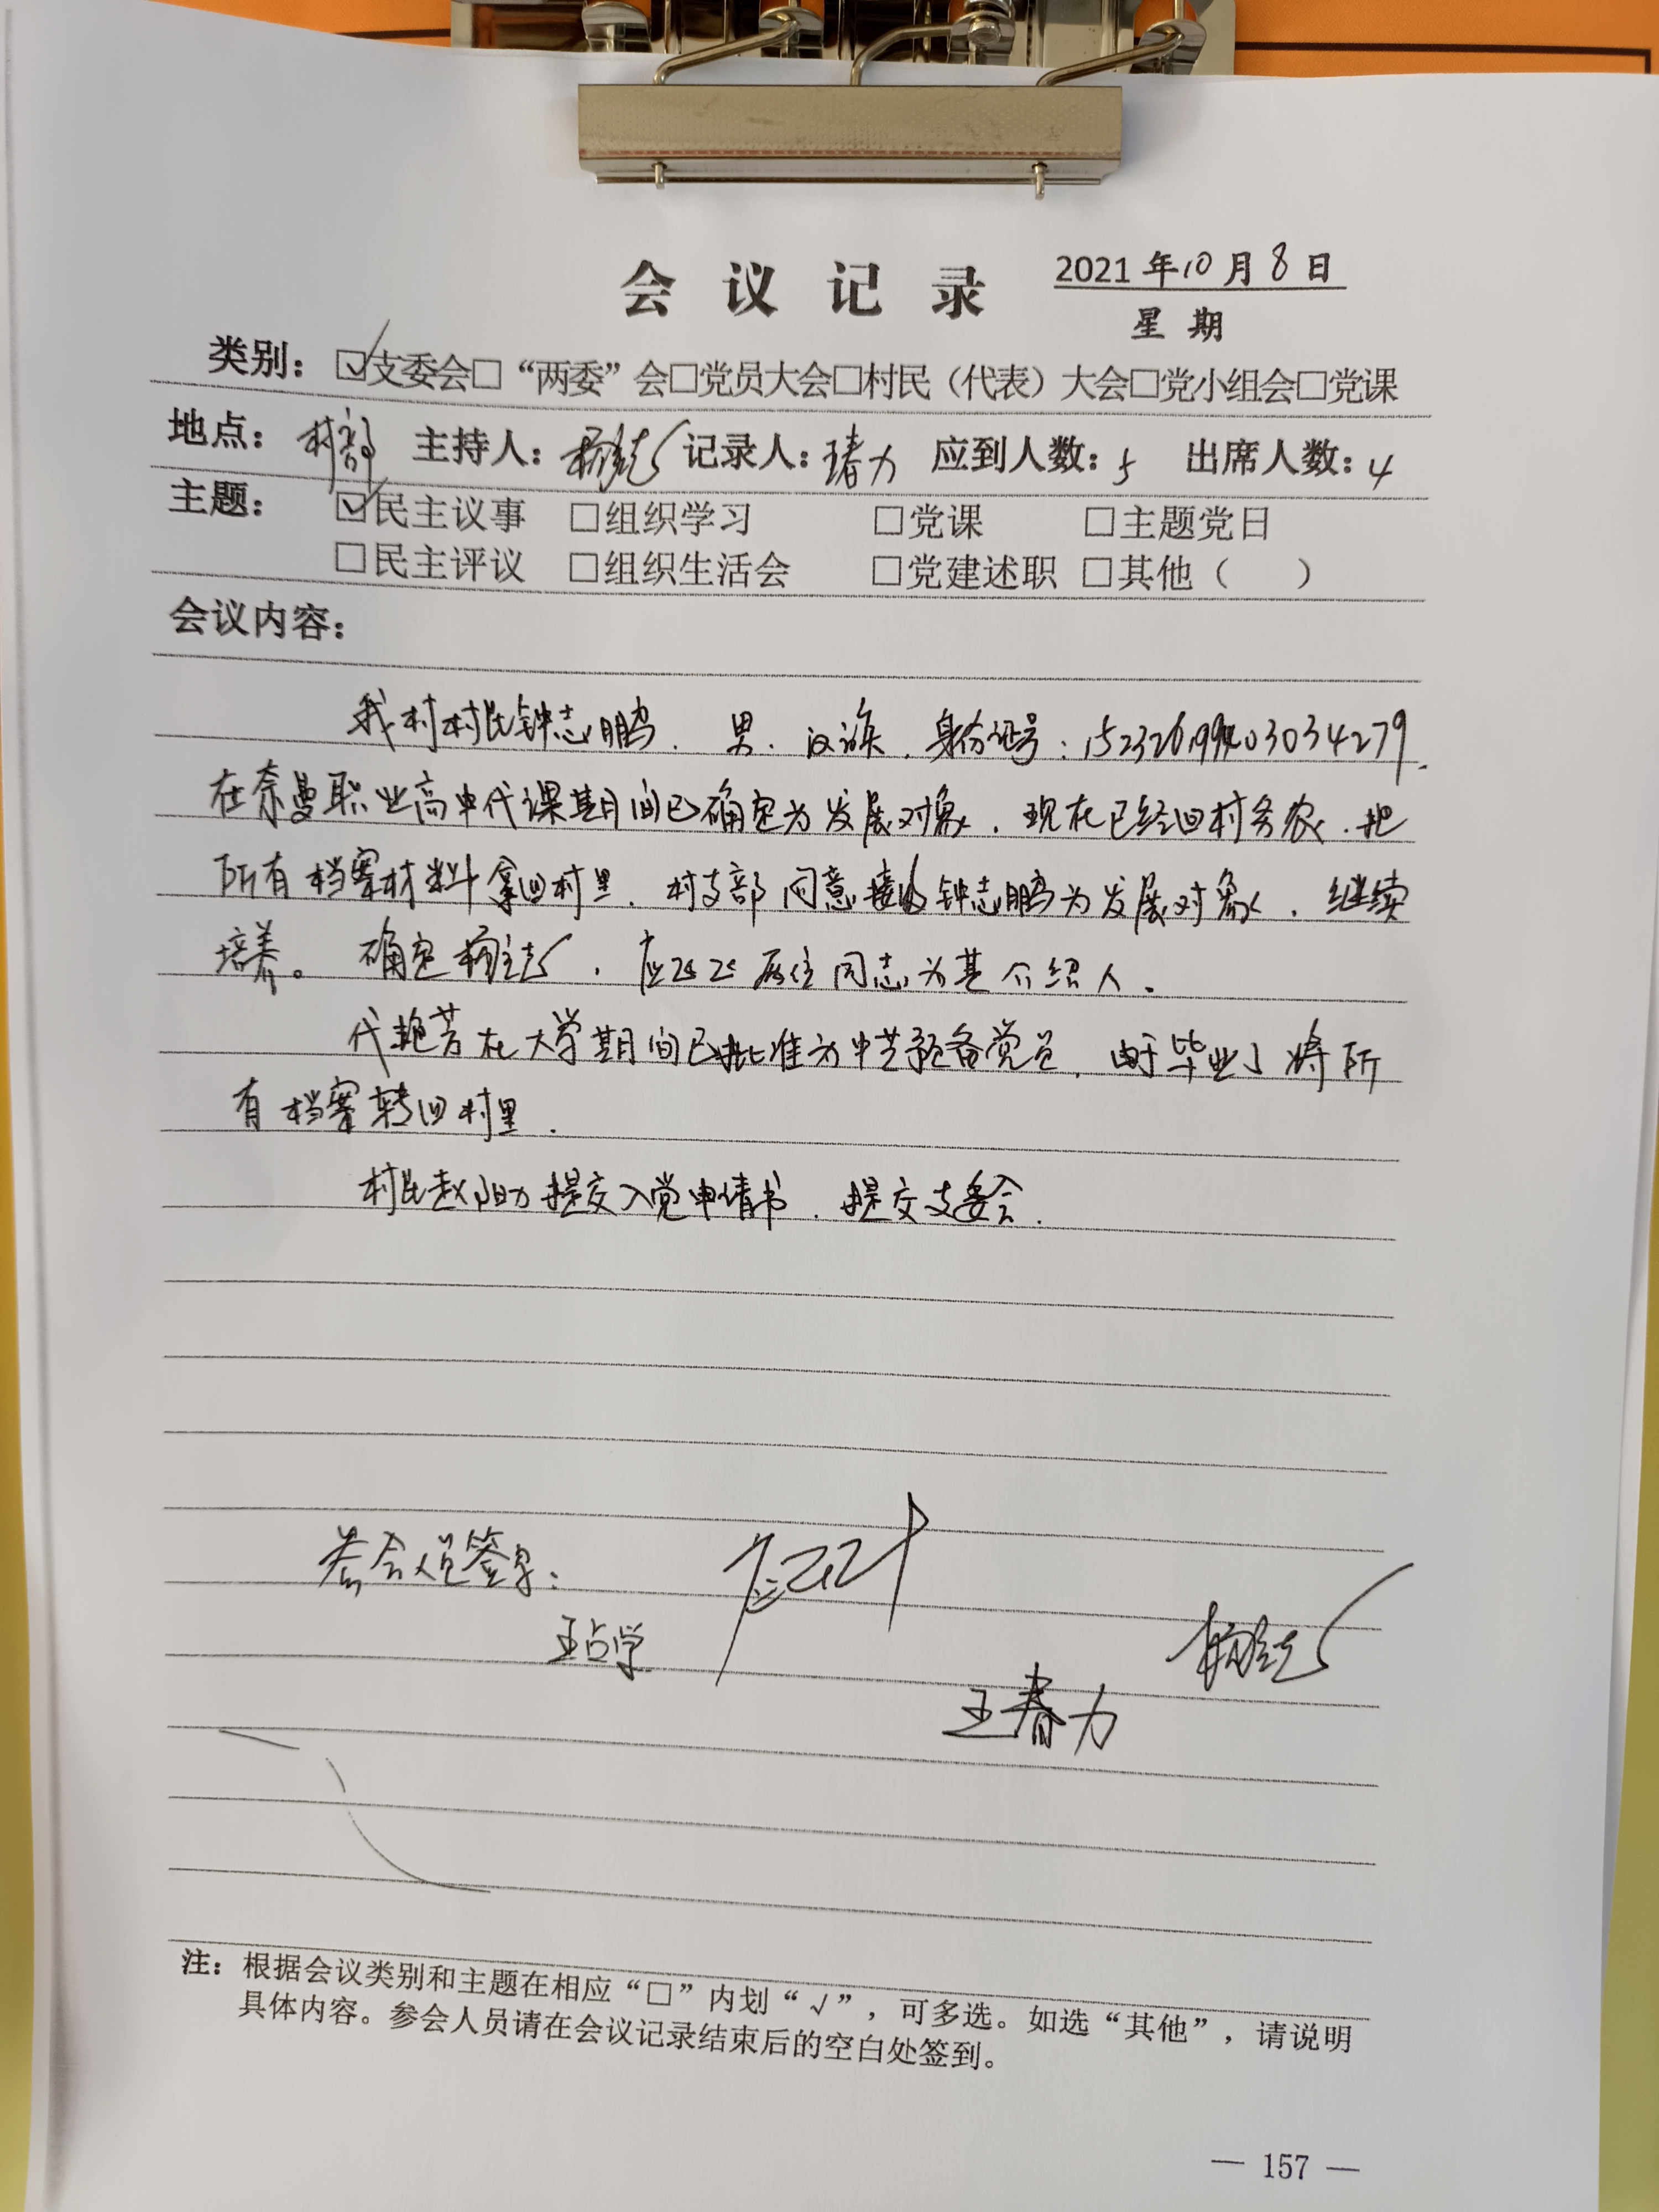 会议记录
2021年10月8日
星期
类别：☑支委会□“两委”会□党员大会□村民（代表）大会□党小组会□党课
地点：村部 主持人： 记录人：王春力 应到人数：5 出席人数：4
主题：☑民主议事 □组织学习 □党课 □主题党日
□民主评议 □组织生活会 □党建述职 □其他（ ）
会议内容：
我村村民钟志鹏、男、汉族、身份证号：152326199403034279.
在奈曼职业高中代课其月间已确定为发展对象、现在已经回村务农、把
所有档案材料拿回村里、村支部同意接收钟志鹏为发展对象、继续
培养。确定 、 同志为其介绍人.
代艳芳在大学期间已批准为中共预备党员，由于毕业了将所
有档案转回村里.
村民赵 提交入党申请书、提交支委会.
参会人员签字：
王占学
王春力
注：根据会议类别和主题在相应“□”内划“√”，可多选。如选“其他”，请说明
具体内容。参会人员请在会议记录结束后的空白处签到。
— 157 —